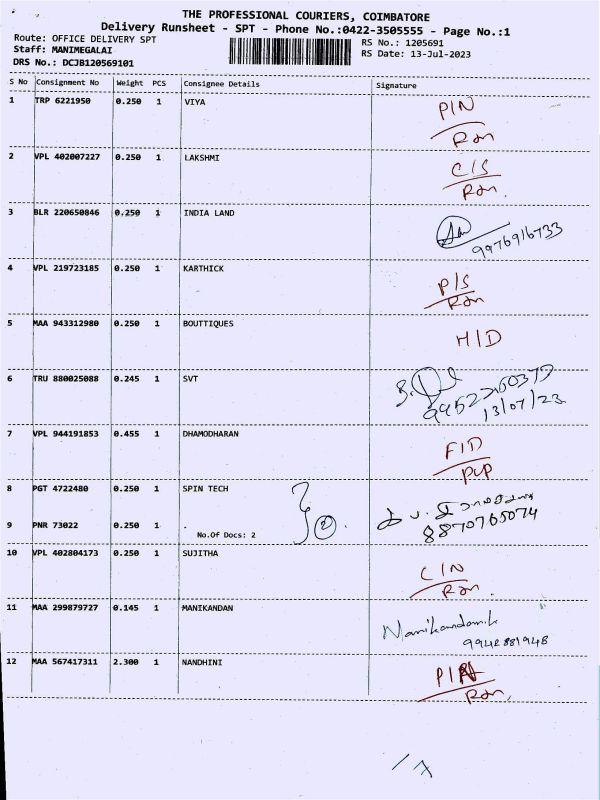 THE PROFESSIONAL COURIERS, COIMBATORE
Delivery Runsheet - SPT - Phone No.:0422-3505555 - Page No.:1
Route: OFFICE DELIVERY SPT
RS No.: 1205691
Staff: MANIMEGALAI
RS Date: 13-Jul-2023
DRS No.: DCJB120569101
S No Consignment No Weight PCS Consignee Details Signature
1 TRP 6221950 0.250 1 VIYA P/N
Ron
2 VPL 402007227 0.250 1 LAKSHMI C/S
Ron.
3 BLR 220650846 0.250 1 INDIA LAND
9976916733
4 VPL 219723185 0.250 1 KARTHICK P/S
Ron
5 MAA 943312980 0.250 1 BOUTTIQUES H/D
6 TRU 880025088 0.245 1 SVT
13/07/23
7 VPL 944191853 0.455 1 DHAMODHARAN F/D
PVP
8 PGT 4722480 0.250 1 SPIN TECH
9 PNR 73022 0.250 1 2
8870765074
No.Of Docs: 2
10 VPL 402804173 0.250 1 SUJITHA C/N
Ron.
11 MAA 299879727 0.145 1 MANIKANDAN Manikandan.k
9942881948
12 MAA 567417311 2.300 1 NANDHINI P/N
Ron,